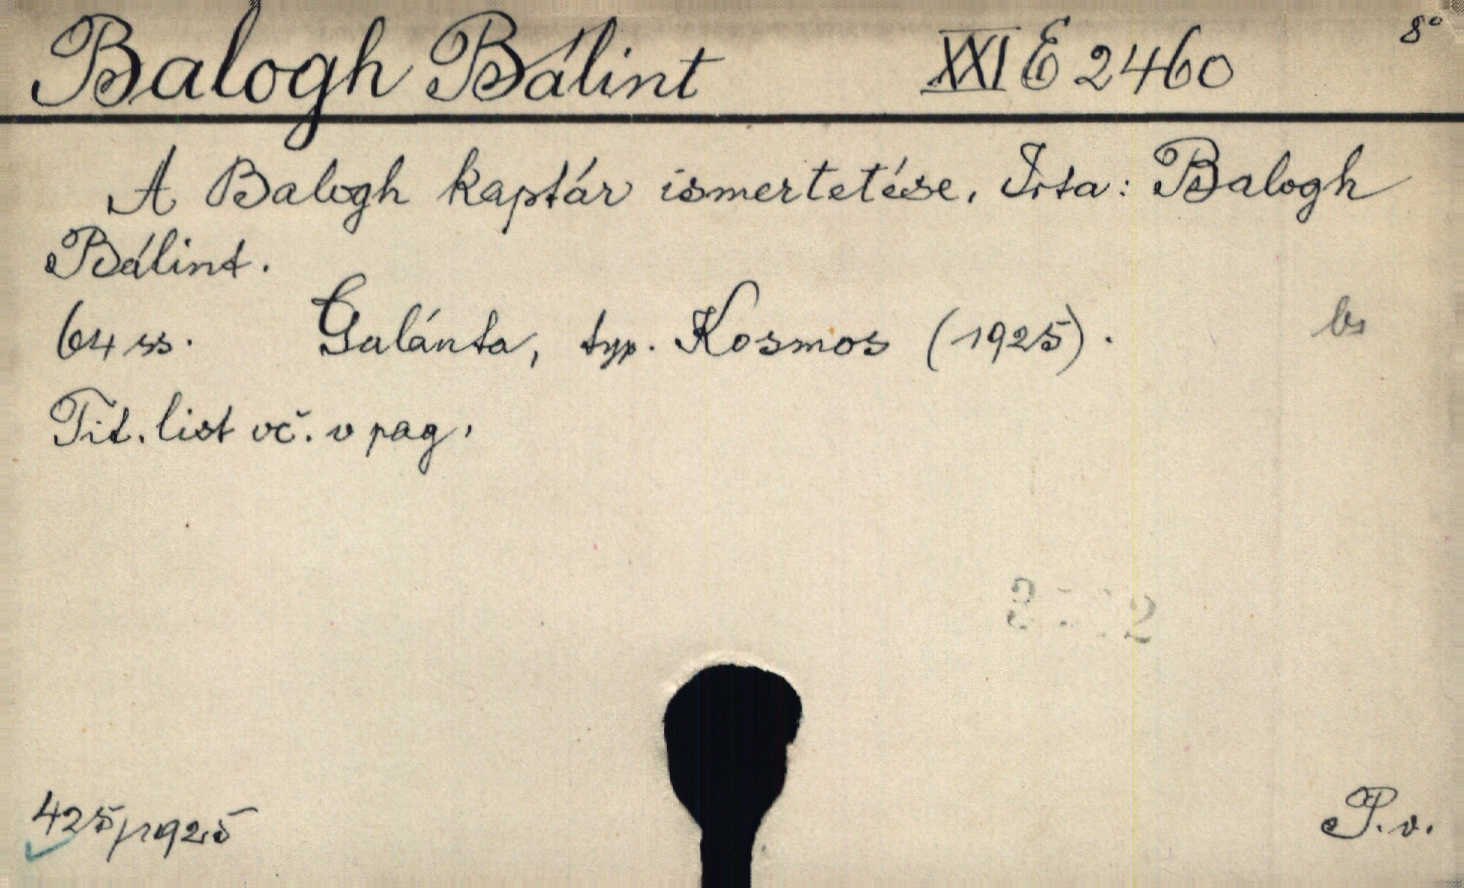 Balogh Bálint XXI E 2460 8°
A Balogh kaptár ismertetése. Írta: Balogh
Bálint.
64 ss. Galánta, typ. Kosmos (1925).
Tit. list vč. v pag.
425/1925 P.v.